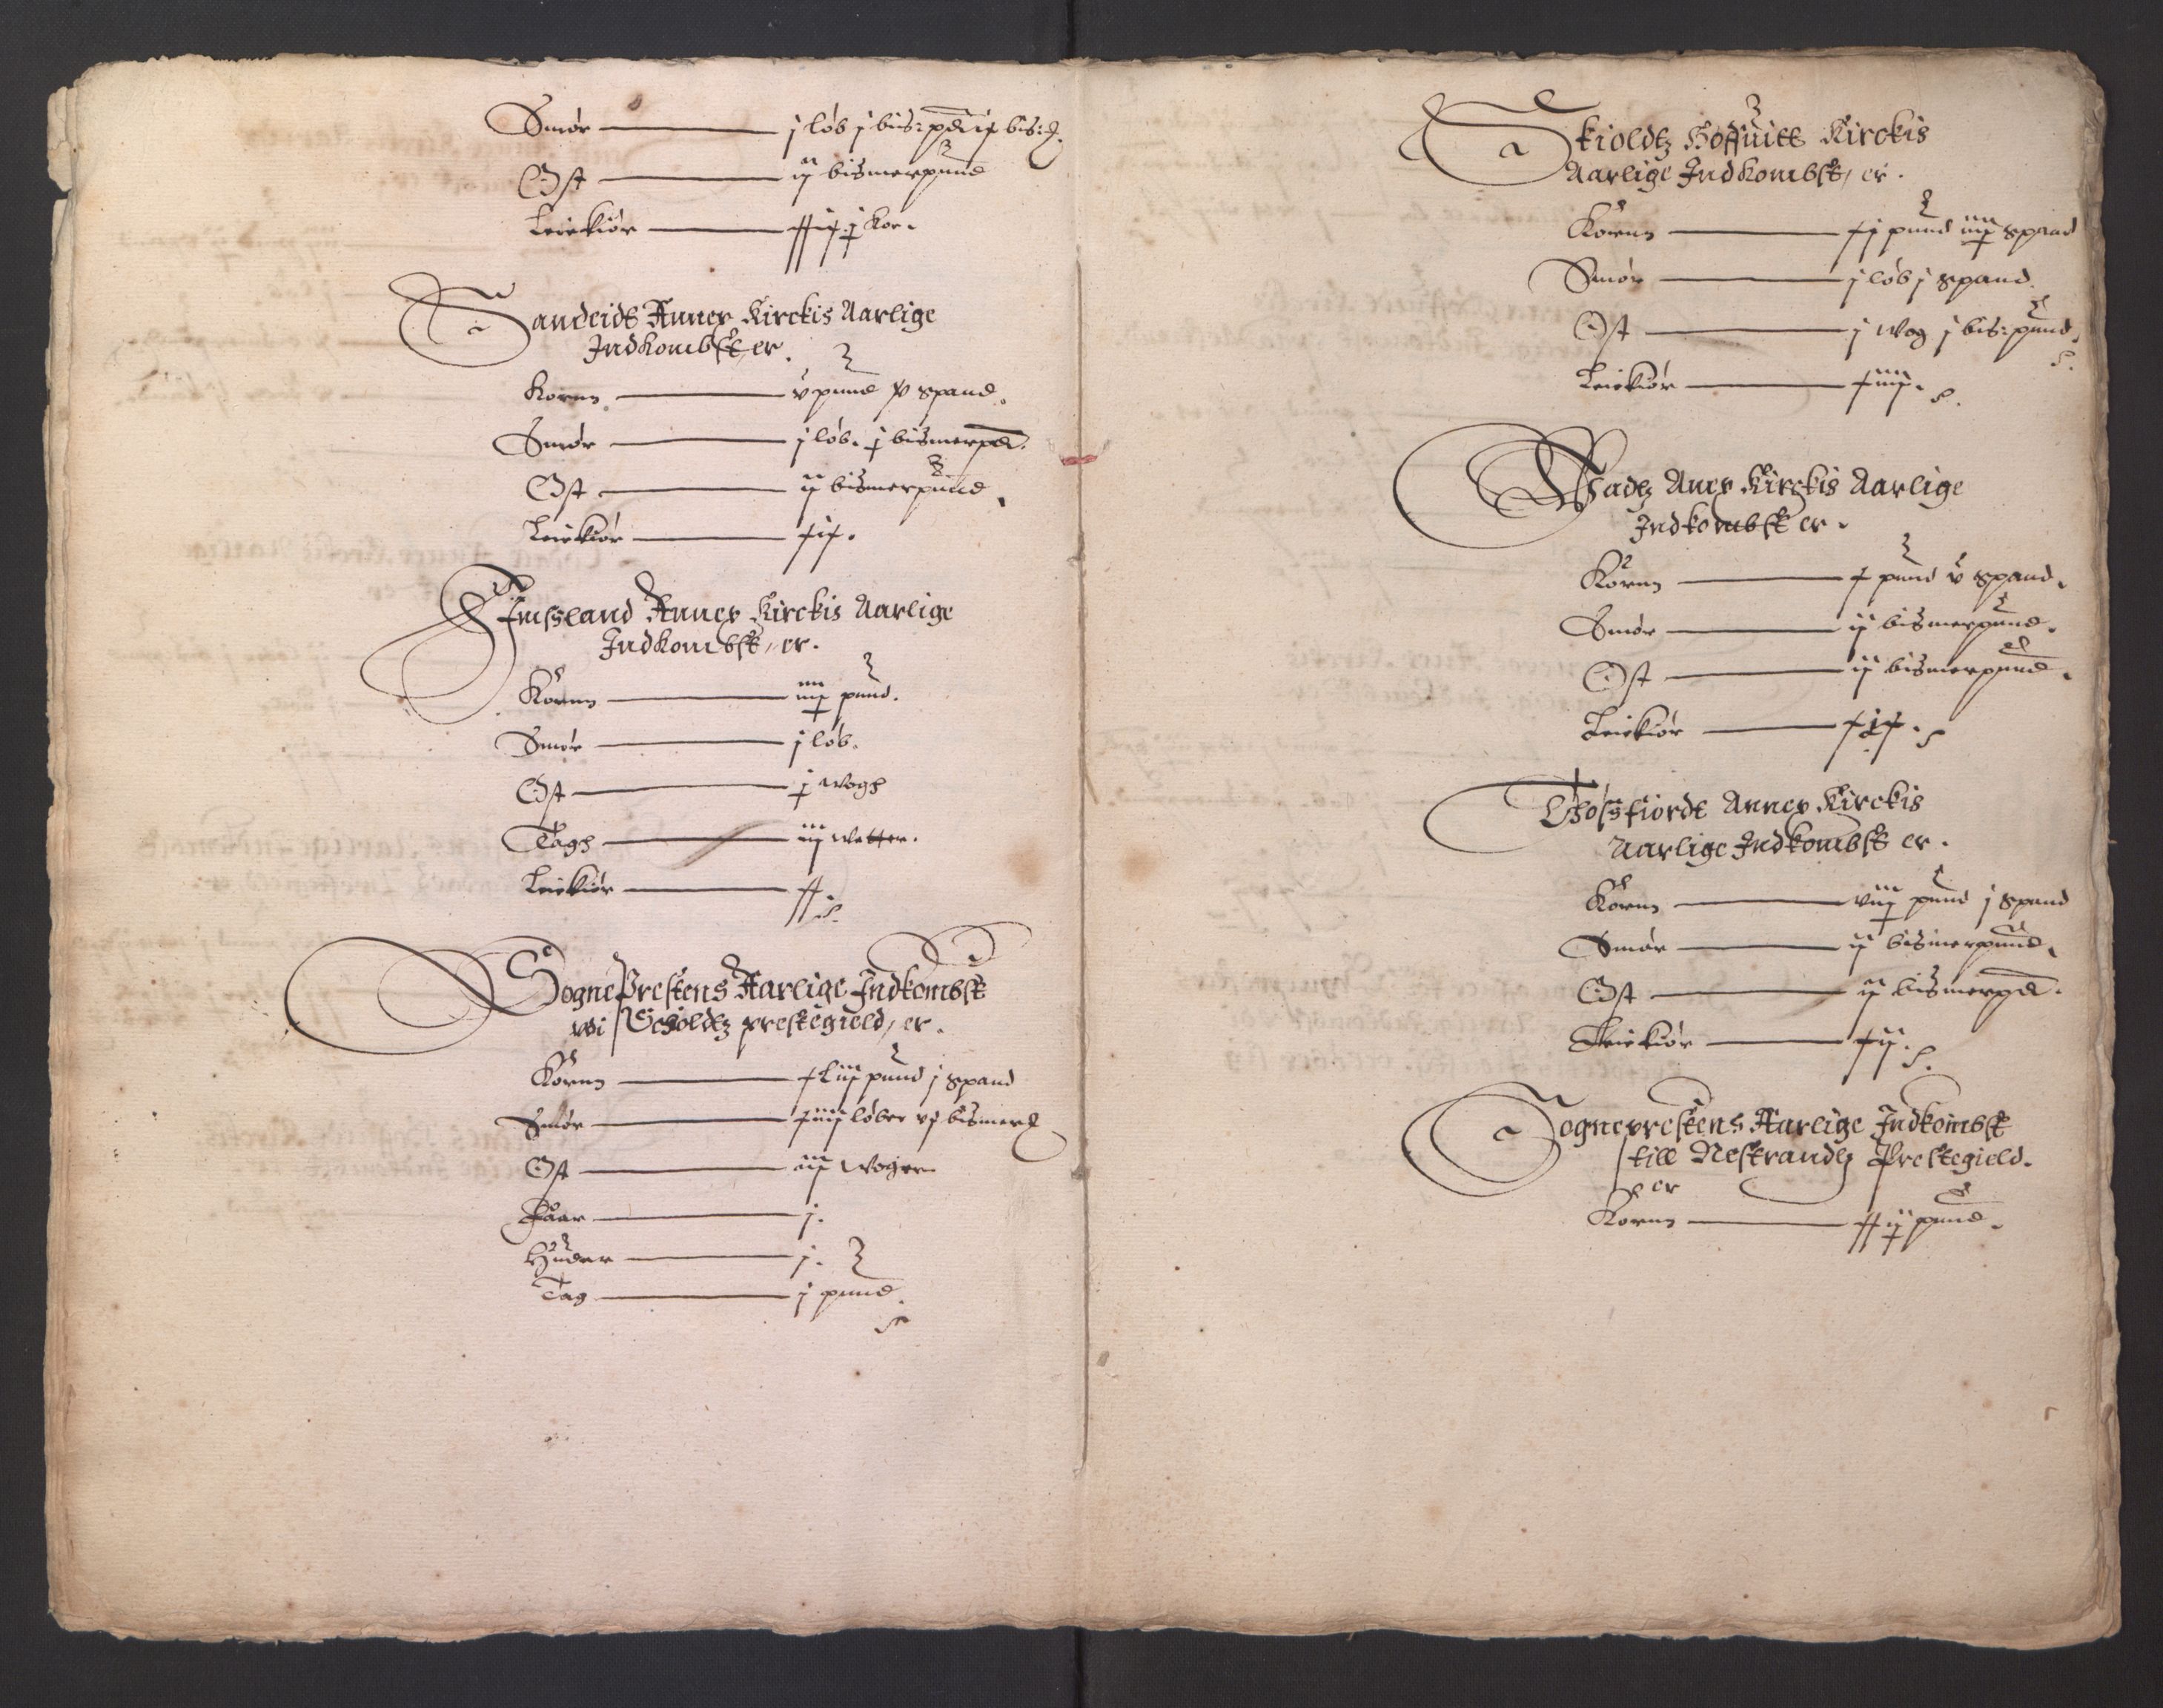 Smør — j løb j bis: pd ix bis: ℔.
Ost — ij bismerpund
Leiekiør — xxix ½ Kor.
Sandeids Annex Kirckis Aarlige
Indkombst, er.
Kornn — v pund xv spand.
Smør — j løb. ½ bismerpd.
Ost — ij bismerpund.
Leiekiør — xix.
Imssland Annex Kirckis Aarlige
Indkombst, er.
Kornn — iiij½ pund.
Smør — j løb.
Ost — ½ wogh
Tagh — iij wetter.
Leiekiør — xx.
Sogne Prestens Aarlige Indkombst
wi Schioldtz prestegield, er.
Kornn — pund j spand
Smør — xiiij løber vj bismer℔
Ost — iij Woger.
Faar — j.
Huder — j.
Tag — j pund.
Skioldtz Hoffuitt Kirckis
Aarlige Indkombst, er.
Kornn — xj pund iiij½ spand
Smør — j løb j spand.
Ost — j wog j bis: pund.
Leiekiør — xiiij.
Wadtz Anex Kirckis Aarlige
Indkombst er.
Kornn — x pund v spand.
Smør — ij bismerpund.
Ost — ij bismerpund.
Leiekiør —
Thossfiordt Annex Kirckis
Aarlige Indkombst er.
Kornn — viij½ pund j spand
Smør — ij bismerpund.
Ost — ij bismerpd.
Leiekiør — xij.
Sogneprestens Aarlige Indkombst
till Nestrandtz Prestegield.
er
Kornn — xxij½ pund.